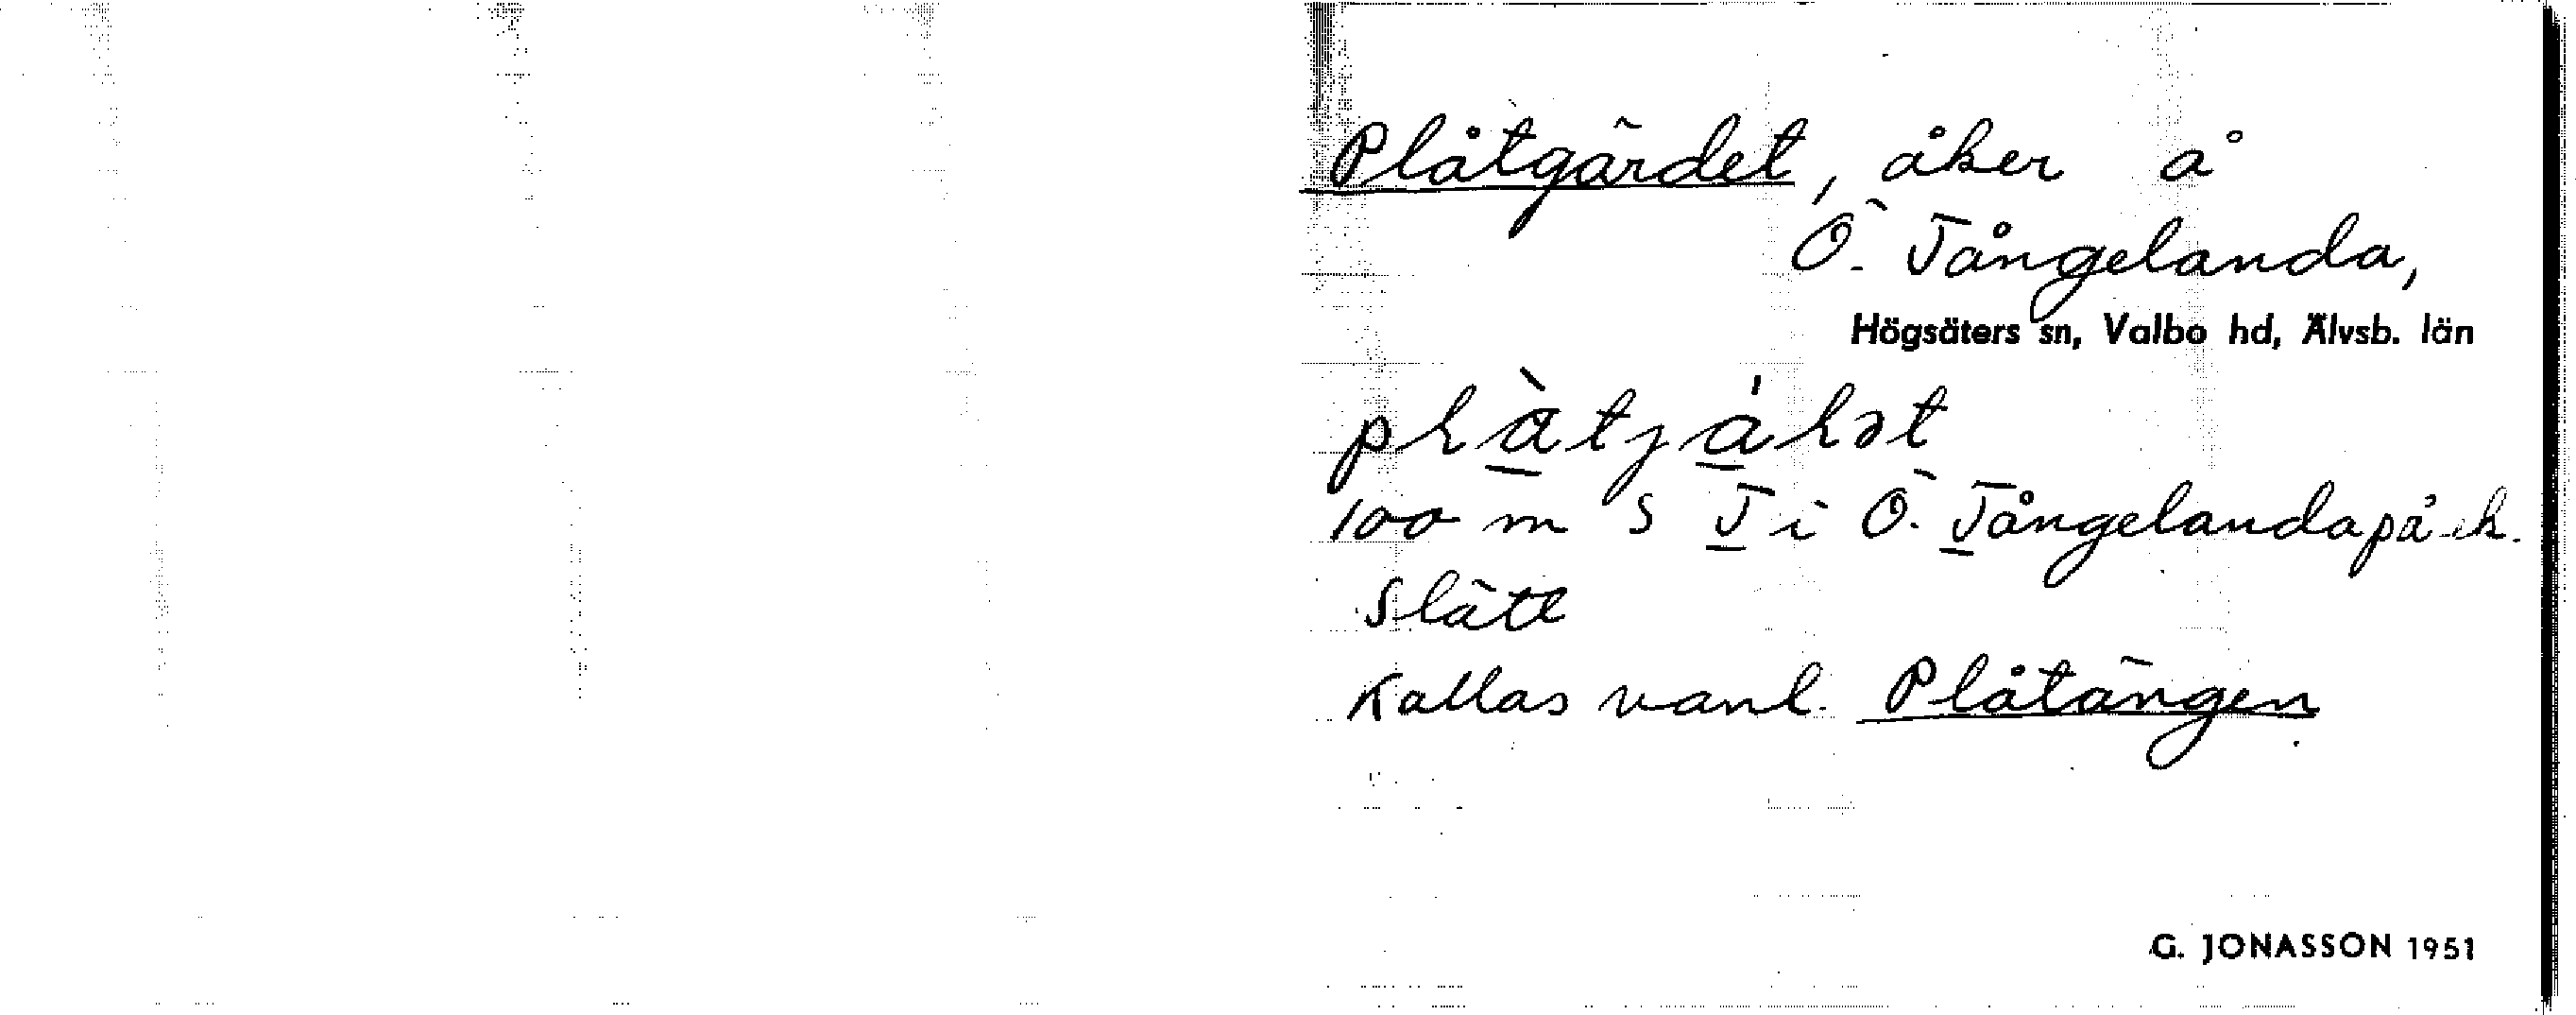 Plåtgärdet, åker å
Ö. Tångelanda,
Högsäters sn, Valbo hd, Älvsb. län
100 m S T i Ö. Tångelanda på ek.
Slätt
Kallas vanl. Plåtängen
G. JONASSON 1951